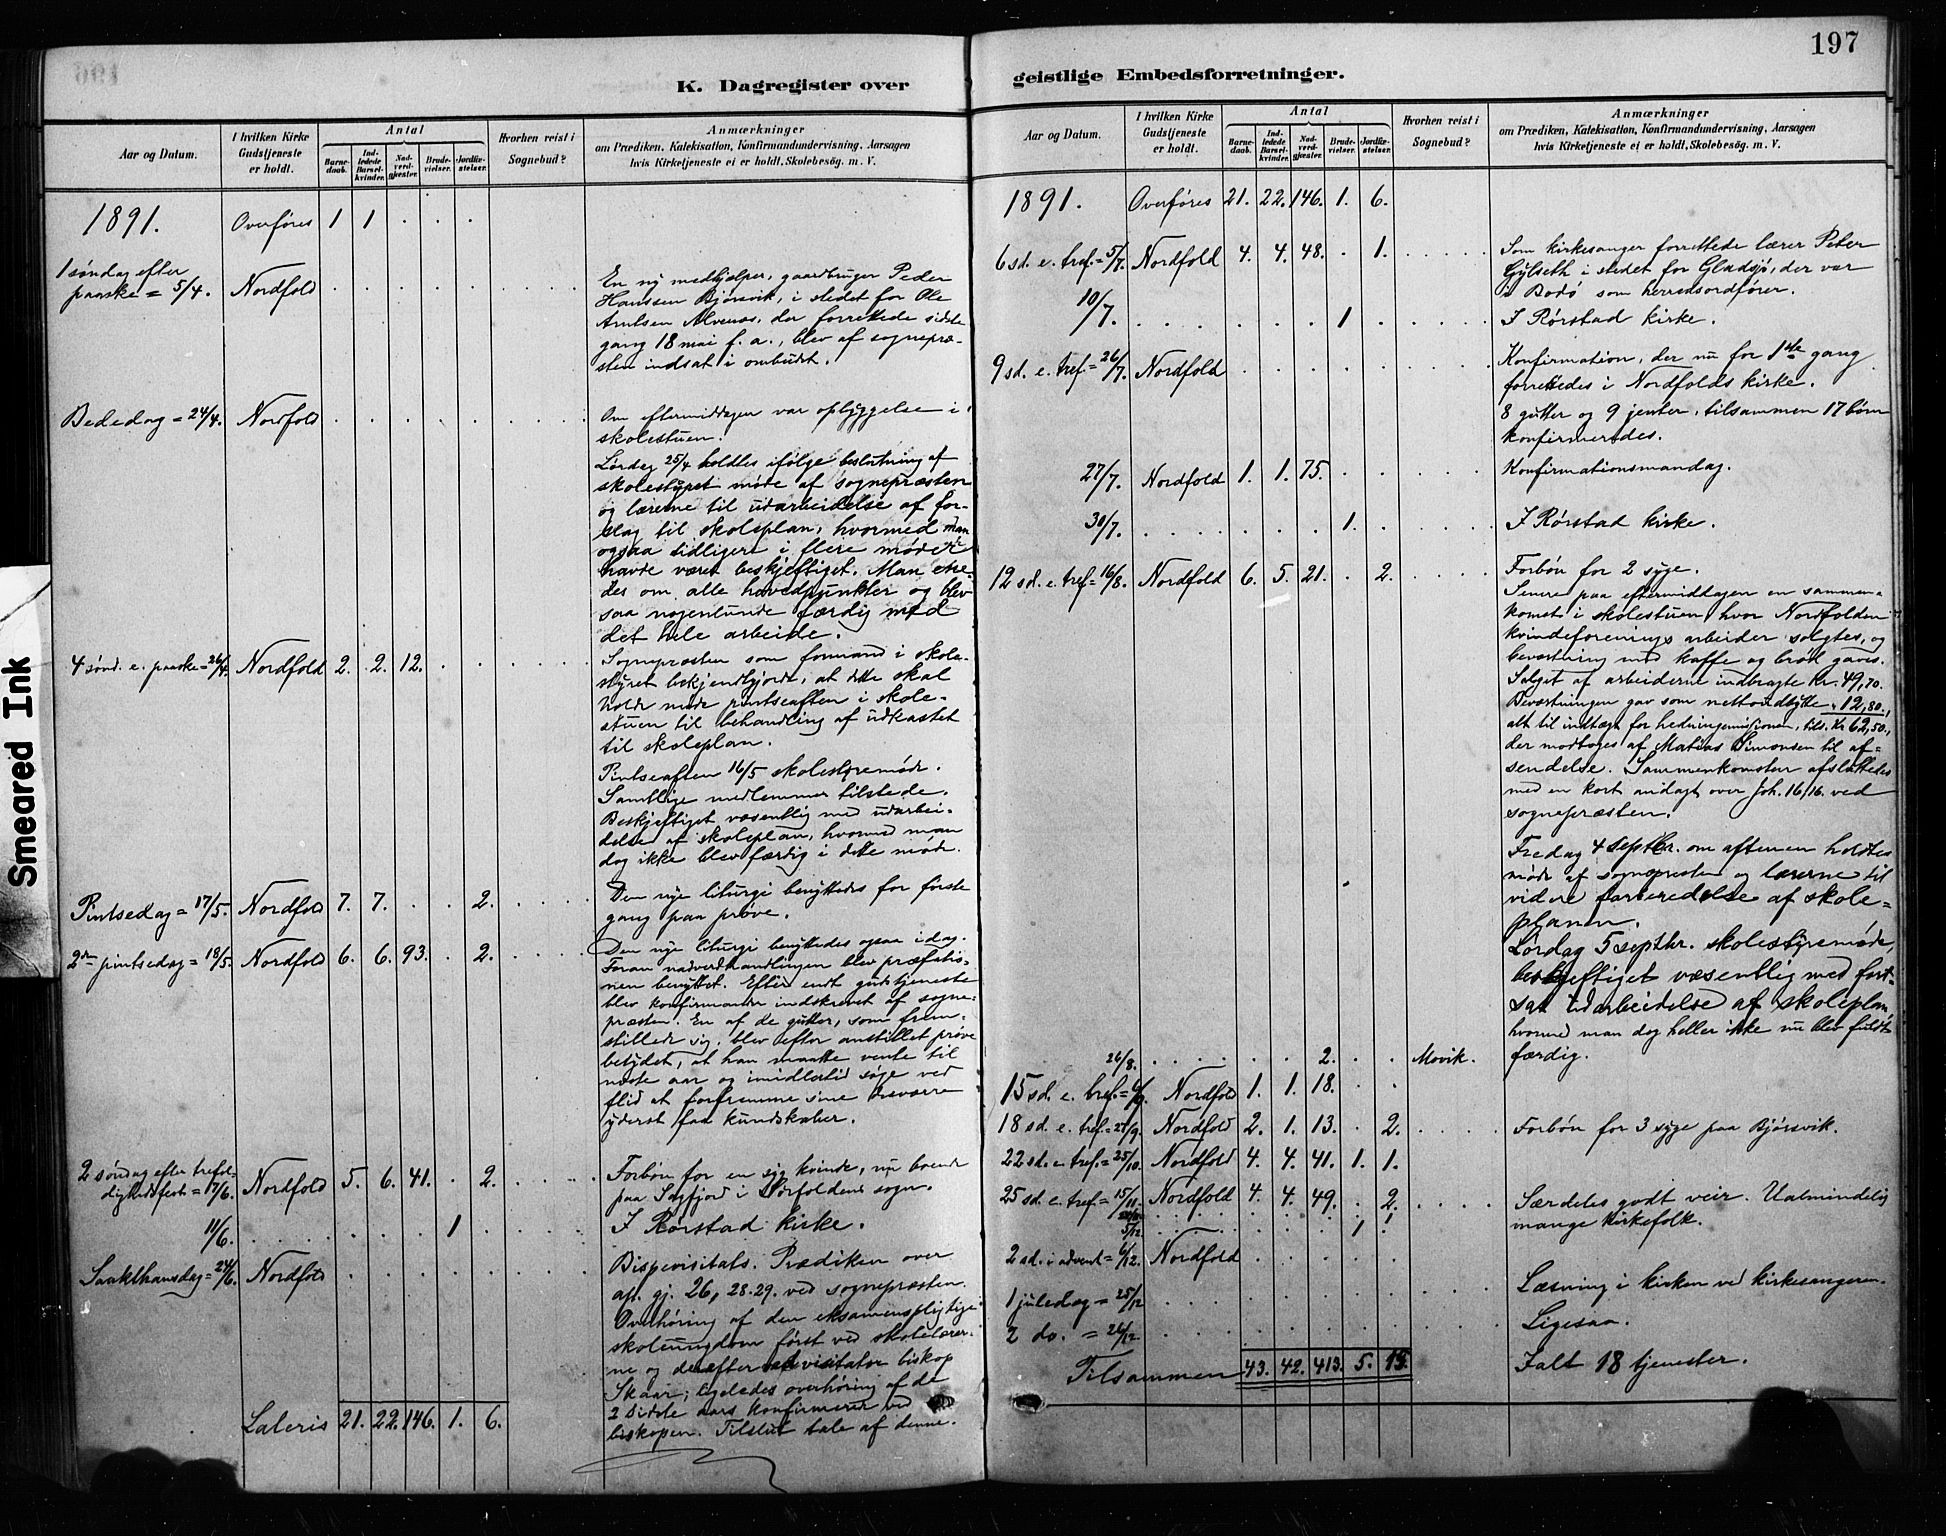 197
K. Dagregister over
geistlige Embedsforretninger.
Smeared Ink
Aar og Datum.
I hvilken Kirke Gudstjeneste er holdt.
Antal
Barnedaab.
Indledede Barselkvinder.
Nadverdgjæster.
Brudevielser.
Jordfæstelser.
Hvorhen reist i Sognebud?
Anmærkninger
om Prædiken, Katekisation, Konfirmandundervisning, Aarsagen
hvis Kirketjeneste ei er holdt, Skolebesög. m. V.
1891. Overføres 1 1 . . .
1 søndag efter
paaske = 5/4. Nordfold
En ny medhjælper, gaardbruger Peder
Hanssen Bjørsvik, i stedet for Ole
Arntsen Alvenes, der forrettede sidste
gang 18 mai f. a., blev af sognepræ-
sten indsat i ombudet.
Bededag = 24/4. Nordfold
Om eftermiddagen var opbyggelse i
skolestuen.
Lørdag 25/4 holdtes ifølge beslutning af
skolestyret møde af sognepræsten
og lærerne til udarbeidelse af for-
slag til skoleplan, hvormed man
ogsaa tidligere i flere møder
havde været beskjeftiget. Man ene-
des om alle hovedpunkter og blev
saa nogenlunde færdig med
det hele arbeide.
4 sønd. e. paaske = 26/4. Nordfold 2. 2. 12.
Sognepræsten som formand i skole-
styret bekjendtgjorde, at dette skal
holde møde pintseaften i skole-
stuen til behandling af udkastet
til skoleplan.
Pintseaften 16/5 skolestyremøde.
Samtlige medlemmer tilstede.
Beskjeftiget væsentlig med udarbei-
delse af skoleplan, hvormed man
dog ikke blev færdig i dette møde.
Pintsedag = 17/5. Nordfold 7. 7. . . 2.
Den nye liturgi benyttedes for første
gang paa prøve.
2den pintsedag = 18/5. Nordfold 6. 6. 93. . 2.
Den nye liturgi benyttedes ogsaa idag.
Foran nadverdhandlingen blev præfatio-
nen benyttet. Efter endt gudstjeneste
blev konfirmander indskrevet af sogne-
præsten. En af de gutter, som frem-
stillede sig, blev efter anstillet prøve
betydet, at han maatte vente til
næste aar og imidlertid søge ved
flid at forfremme sine desværre
yderst faa kundskaber.
2 søndag efter trefol-
dighedsfest = Nordfold 5. 6. 41. . 2.
Forbøn for en syg kvinde, nu boende
paa Sagfjord i Sørfoldens sogn.
11/6. 1
I Rørstad kirke.
Sankthansdag = 24/6. Nordfold
Bispevisitats. Prædiken over
ap. gj. 26, 28.29. ved sognepræsten.
Overhøring af den eksamenspligtige
skoleungdom først ved skolelærer-
ne og derefter ved visitator biskop
Skaar; ligeledes overhøring af de
2 sidste aars konfirmerede ved
biskopen. Tilslut tale af denne.
Lateris 21. 22. 146. 1. 6.
Aar og Datum.
I hvilken Kirke Gudstjeneste er holdt.
Antal
Barnedaab.
Indledede Barselkvinder.
Nadverdgjæster.
Brudevielser.
Jordfæstelser.
Hvorhen reist i Sognebud?
Anmærkninger
om Prædiken, Katekisation, Konfirmandundervisning, Aarsagen
hvis Kirketjeneste ei er holdt, Skolebesög. m. V.
1891. Overføres 21. 22. 146. 1. 6.
6 sd. e. tref. = 5/7. Nordfold 4. 4. 48. . 1.
Som kirkesanger forrettede lærer Peter
Gylseth i stedet for Gladsjø, der var
i Bodø som herredsordfører.
10/7. 1
I Rørstad kirke.
9 sd. e. tref. = 26/7. Nordfold
Konfirmation, der nu for 1ste gang
forrettedes i Nordfolds kirke.
8 gutter og 9 jenter, tilsammen 17 børn
konfirmeredes.
27/7. Nordfold 1. 1. 75.
Konfirmationsmandag.
30/7. 1.
I Rørstad kirke.
12 sd. e. tref. = 16/8. Nordfold 6. 5. 21. . 2.
Forbøn for 2 syge.
Senere paa eftermiddagen en sammen-
komst i skolestuen hvor Nordfolden
kvindeforenings arbeider solgtes, og
bevertning med kaffe og brød gaves.
Salget af arbeiderne indbragte Kr. 49,70.
Bevertningen gav som nettoudbytte " 12,80.,
alt til indtægt for hedningemissionen, tils. Kr 62,50.,
der modtoges af Matias Simonsen til af-
sendelse. Sammenkomsten afsluttedes
med en kort andagt over Joh. 16,16. ved
sognepræsten.
Fredag 4 septbr. om aftenen holdtes
møde af sognepræsten og lærerne til
videre forberedelse af skole-
planen.
Lørdag 5 septbr. skolestyremøde,
beskjeftiget væsentlig med fort-
sat udarbeidelse af skoleplan,
hvormed man dog heller ikke nu blev fuldt
færdig.
26/8. 2. Movik.
15 sd. e. tref. = 6/9. Nordfold 1. 1. 18.
18 sd. e. tref. = 27/9. Nordfold 2. 1. 13. . 2.
Forbøn for 3 syge paa Bjørsvik.
22 sd. e. tref. = 25/10. Nordfold 4. 4. 41. 1. 1.
25 sd. e. tref. = 15/11 Nordfold 4. 4. 49. . 2.
Særdeles godt veir. Ualmindelig
mange kirkefolk.
5/12. 1
2 sd. i advent = 6/12. Nordfold
Læsning i kirken ved kirkesangeren.
1 juledag = 25/12
Ligesaa.
2 do. = 26/12
Tilsammen 43. 42. 413. 5. 15.
Ialt 18 tjenester.